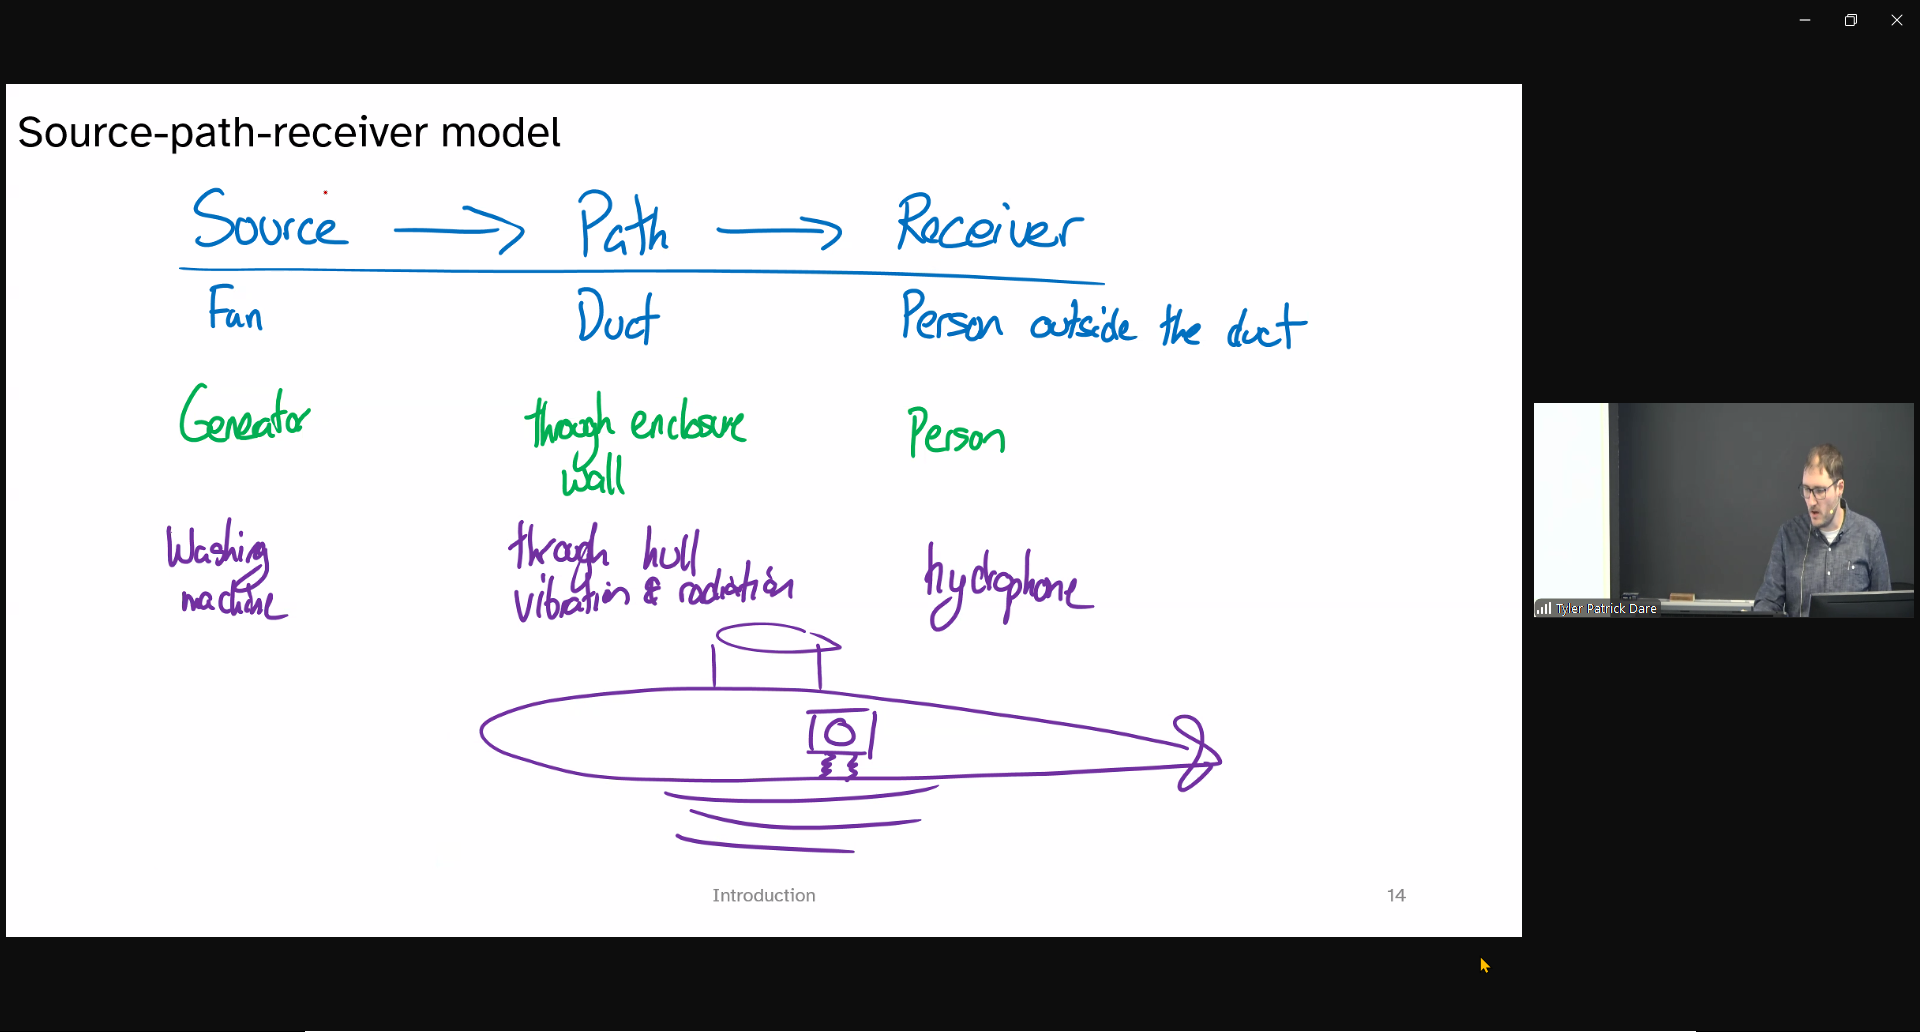 Source-path-receiver model
Source → Path → Receiver
Fan Duct Person outside the duct
Geneator though enclosure Person
wall
Washing through hull hydrophone
machine vibration & radiation
Introduction 14
Tyler Patrick Dare